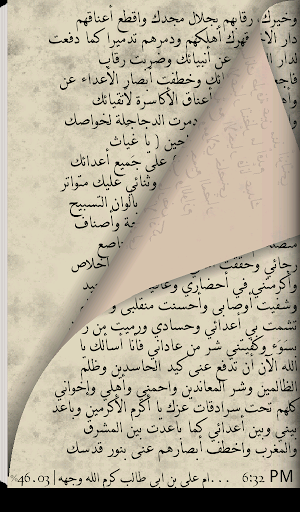 وخيرك رقابهم بجلال مجدك واقطع أعناقهم
دار الا قهرك أهلكهم ودمرهم تدميرا كما دفعت
لدار عن أنبيائك وضربت رقاب
انك وخطفت أبصار الاعداء عن
أعناق الأكاسرة لأتقيائك
دمرت الدجاجلة لخواصك
ين ( يا غياث
على جميع أعدائك
وثنائي عليك متواتر
بألوان التسبيح
وأصناف
رجائي وحققت اخلاص
وأكرمتني في أحضاري
وشفيت أوصابي وأحسنت منقلبي
تشمت بي أعدائي وحسادي ورميت من ر
بسوء وكفيتني شر من عاداني فأنا أسألك يا
الله الآن أن تدفع عني كيد الحاسدين وظلم
الظالمين وشر المعاندين واحمني وأهلي وإخواني
كلهم تحت سرادقات عزك يا أكرم الأكرمين وباعد
بيني وبين أعدائي كما باعدت بين المشرق
والمغرب واخطف أبصارهم عني بنور قدسك
6:32 PM ...ام علي بن ابي طالب كرم الله وجهه | 46.03%